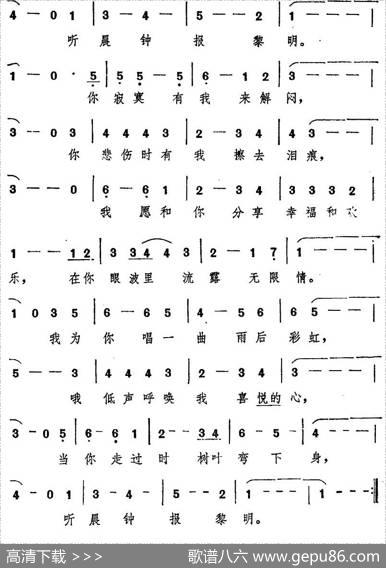 4 — 0 1 | 3 — 4 — | 5 — — 2 | 1 — — — |
听 晨 钟 报 黎 明。
1 — 0 · 5 | 5 5 — 5 | 6 — 1 2 | 3 — — — |
你 寂 寞 有 我 来 解 闷，
3 — 0 3 | 4 4 4 3 | 2 — 3 4 | 4 3 — — |
你 悲 伤 时 有 我 擦 去 泪 痕，
3 — — 0 | 6 — 6 1 | 2 — 3 4 | 3 3 3 2 |
我 愿 和 你 分 享 幸 福 和 欢
1 — — 1 2 | 3 3 4 4 — | 2 — 1 7 | 1 — — — |
乐， 在 你 眼 波 里 流 露 无 限 情。
1 0 3 5 | 6 — 6 5 | 6 — 6 5 | 1 6 6 5 | 6 5 — — |
我 为 你 唱 一 曲 雨 后 彩 虹，
5 — — 3 | 4 4 4 3 | 2 — 3 4 | 3 — — — |
哦 低 声 呼 唤 我 喜 悦 的 心，
3 — 0 5 | 6 — 6 1 | 2 — 2 3 4 | 6 — 5 — | 4 — — — |
当 你 走 过 时 树 叶 弯 下 身，
4 — 0 1 | 3 — 4 — | 5 — — 2 | 1 — — — | 1 — — — :||
听 晨 钟 报 黎 明。
高清下载 >>> 歌谱八六 www.gepu86.com